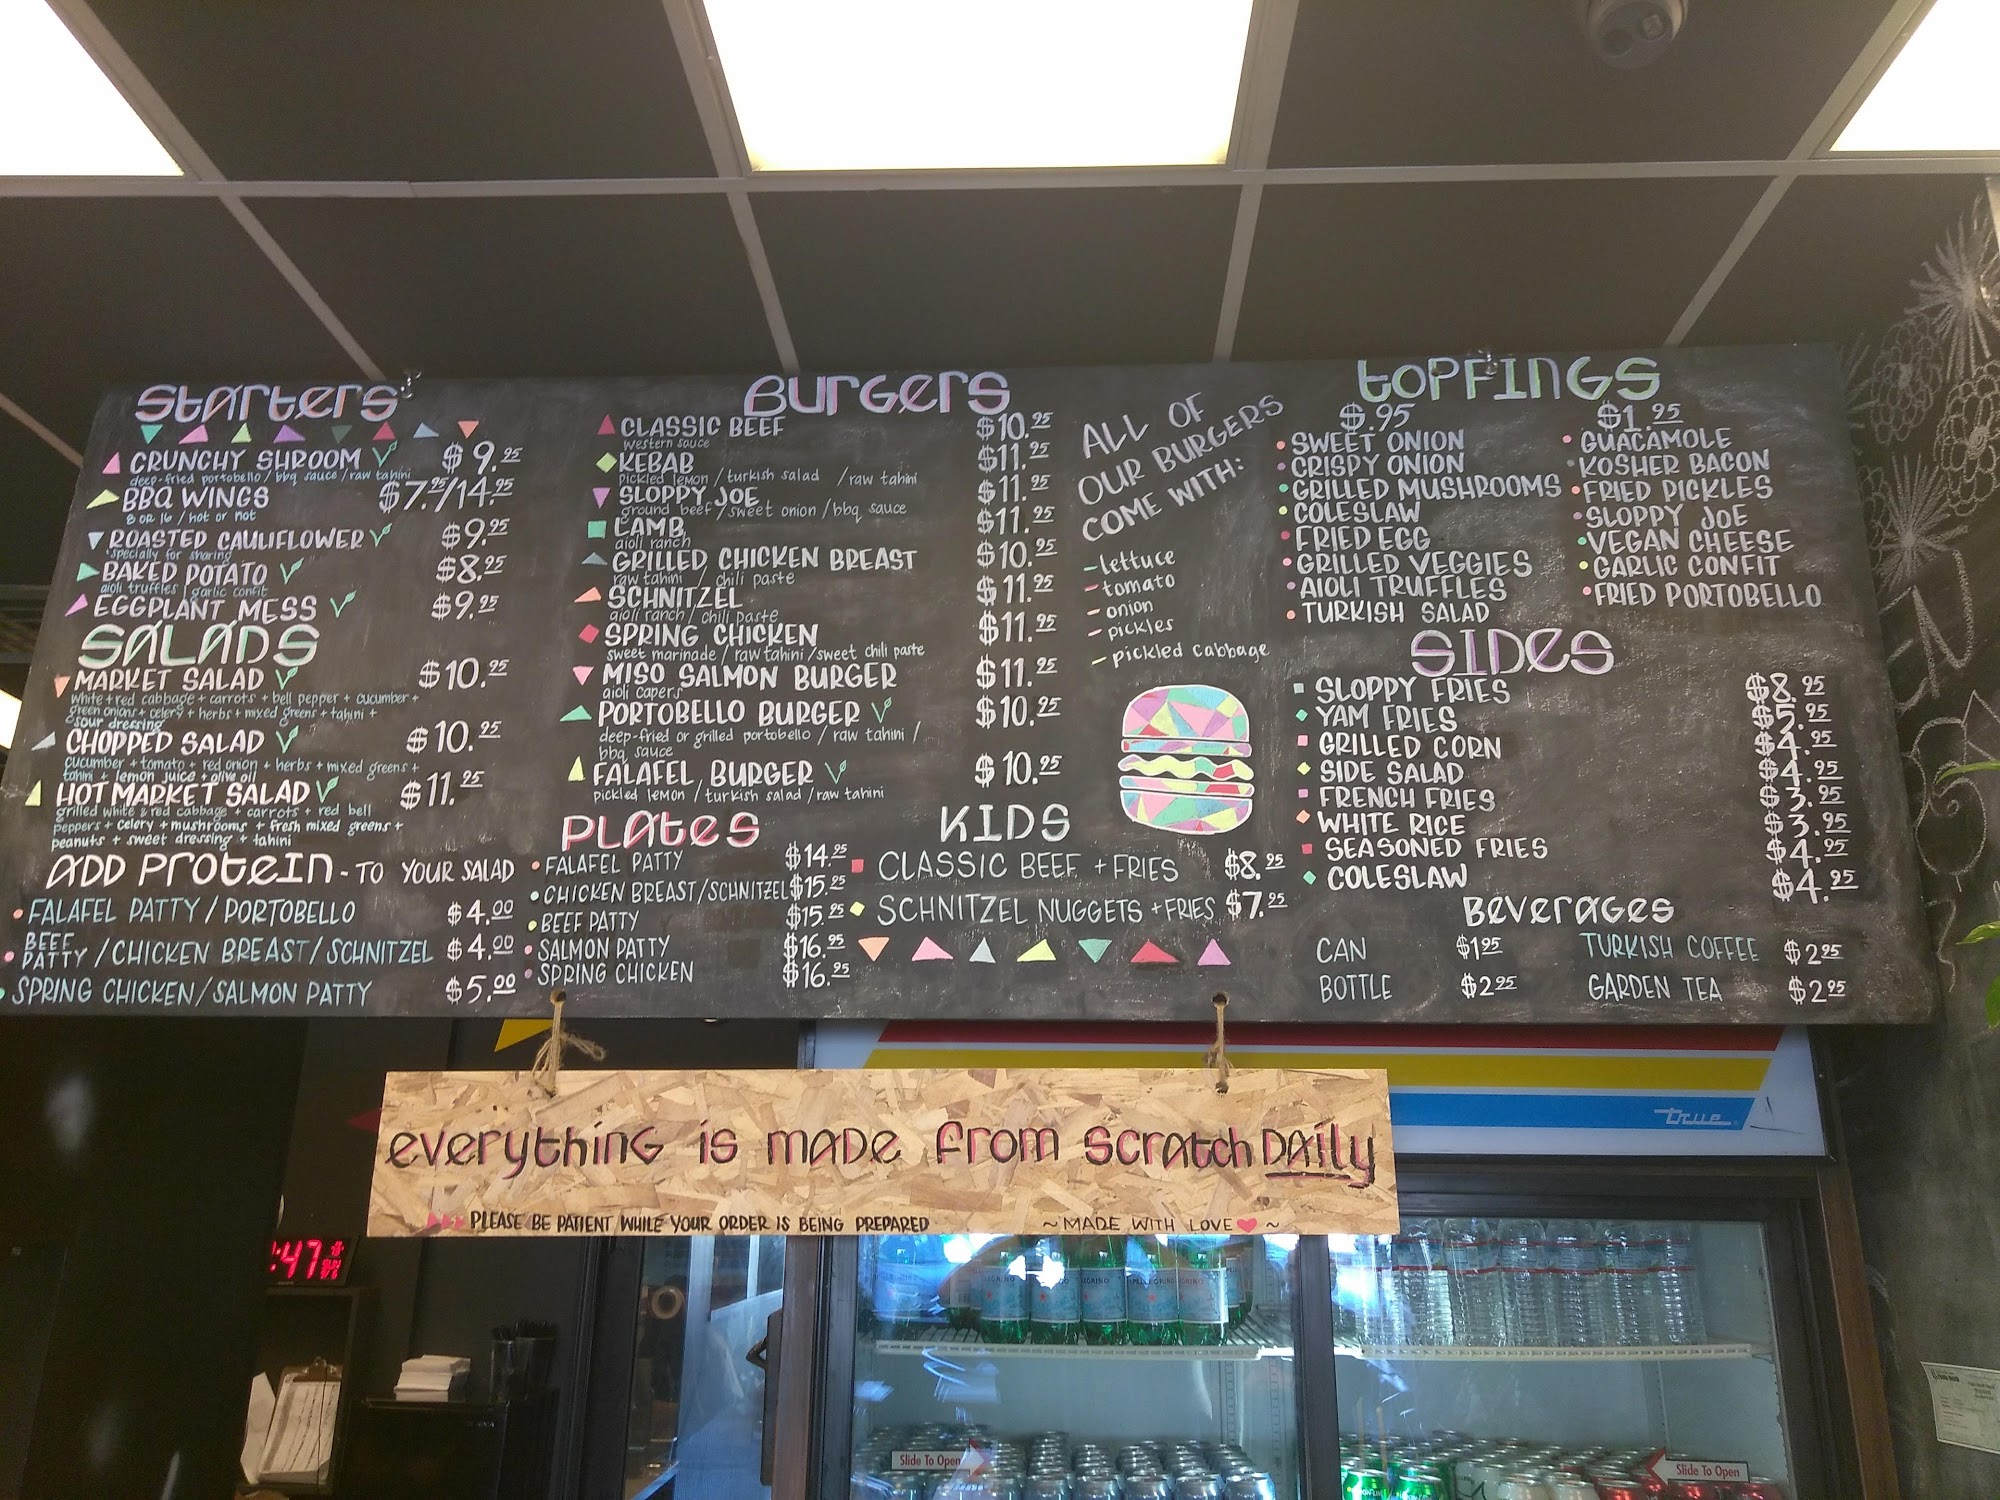 Starters
CRUNCHY SHROOM $9.95
deep-fried portobello / bbq sauce / raw tahini
BBQ WINGS $7.95/14.95
8 OR 16 / hot or not
ROASTED CAULIFLOWER $9.95
*specially for sharing
BAKED POTATO $8.95
aioli truffles / garlic confit
EGGPLANT MESS $9.95
SALADS
MARKET SALAD $10.95
white + red cabbage + carrots + bell pepper + cucumber +
green onions + celery + herbs + mixed greens + tahini +
sour dressing
CHOPPED SALAD $10.95
cucumber + tomato + red onion + herbs + mixed greens +
tahini + lemon juice + olive oil
HOT MARKET SALAD $11.95
grilled white & red cabbage + carrots + red bell
peppers + celery + mushrooms + fresh mixed greens +
peanuts + sweet dressing + tahini
ADD PROTEIN - TO YOUR SALAD
FALAFEL PATTY / PORTOBELLO $4.00
BEEF PATTY / CHICKEN BREAST / SCHNITZEL $4.00
SPRING CHICKEN / SALMON PATTY $5.00
BURGERS
CLASSIC BEEF $10.95
western sauce
KEBAB $11.95
pickled lemon / turkish salad / raw tahini
SLOPPY JOE $11.95
ground beef / sweet onion / bbq sauce
LAMB $11.95
aioli ranch
GRILLED CHICKEN BREAST $10.95
raw tahini / chili paste
SCHNITZEL $11.95
aioli ranch / chili paste
SPRING CHICKEN $11.95
sweet marinade / raw tahini / sweet chili paste
MISO SALMON BURGER $11.95
aioli capers
PORTOBELLO BURGER $10.95
deep-fried or grilled portobello / raw tahini /
bbq sauce
FALAFEL BURGER $10.95
pickled lemon / turkish salad / raw tahini
PLATES
FALAFEL PATTY $14.95
CHICKEN BREAST/SCHNITZEL $15.95
BEEF PATTY $15.95
SALMON PATTY $16.95
SPRING CHICKEN $16.95
KIDS
CLASSIC BEEF + FRIES $8.95
SCHNITZEL NUGGETS + FRIES $7.95
ALL OF
OUR BURGERS
COME WITH:
- lettuce
- tomato
- onion
- pickles
- pickled cabbage
TOPPINGS
$.95
SWEET ONION
CRISPY ONION
GRILLED MUSHROOMS
COLESLAW
FRIED EGG
GRILLED VEGGIES
AIOLI TRUFFLES
TURKISH SALAD
$1.95
GUACAMOLE
KOSHER BACON
FRIED PICKLES
SLOPPY JOE
VEGAN CHEESE
GARLIC CONFIT
FRIED PORTOBELLO
SIDES
SLOPPY FRIES $8.95
YAM FRIES $5.95
GRILLED CORN $4.95
SIDE SALAD $4.95
FRENCH FRIES $3.95
WHITE RICE $3.95
SEASONED FRIES $4.95
COLESLAW $4.95
BEVERAGES
CAN $1.95 TURKISH COFFEE $2.95
BOTTLE $2.95 GARDEN TEA $2.95
true
everything is made from scratch DAILY
PLEASE BE PATIENT WHILE YOUR ORDER IS BEING PREPARED
~ MADE WITH LOVE ~
:47
Slide To Open
Slide To Open